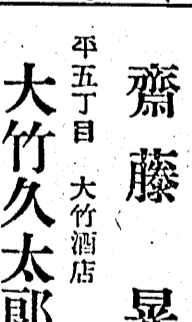 齋藤晃
平五丁目 大竹酒店
大竹久太郎